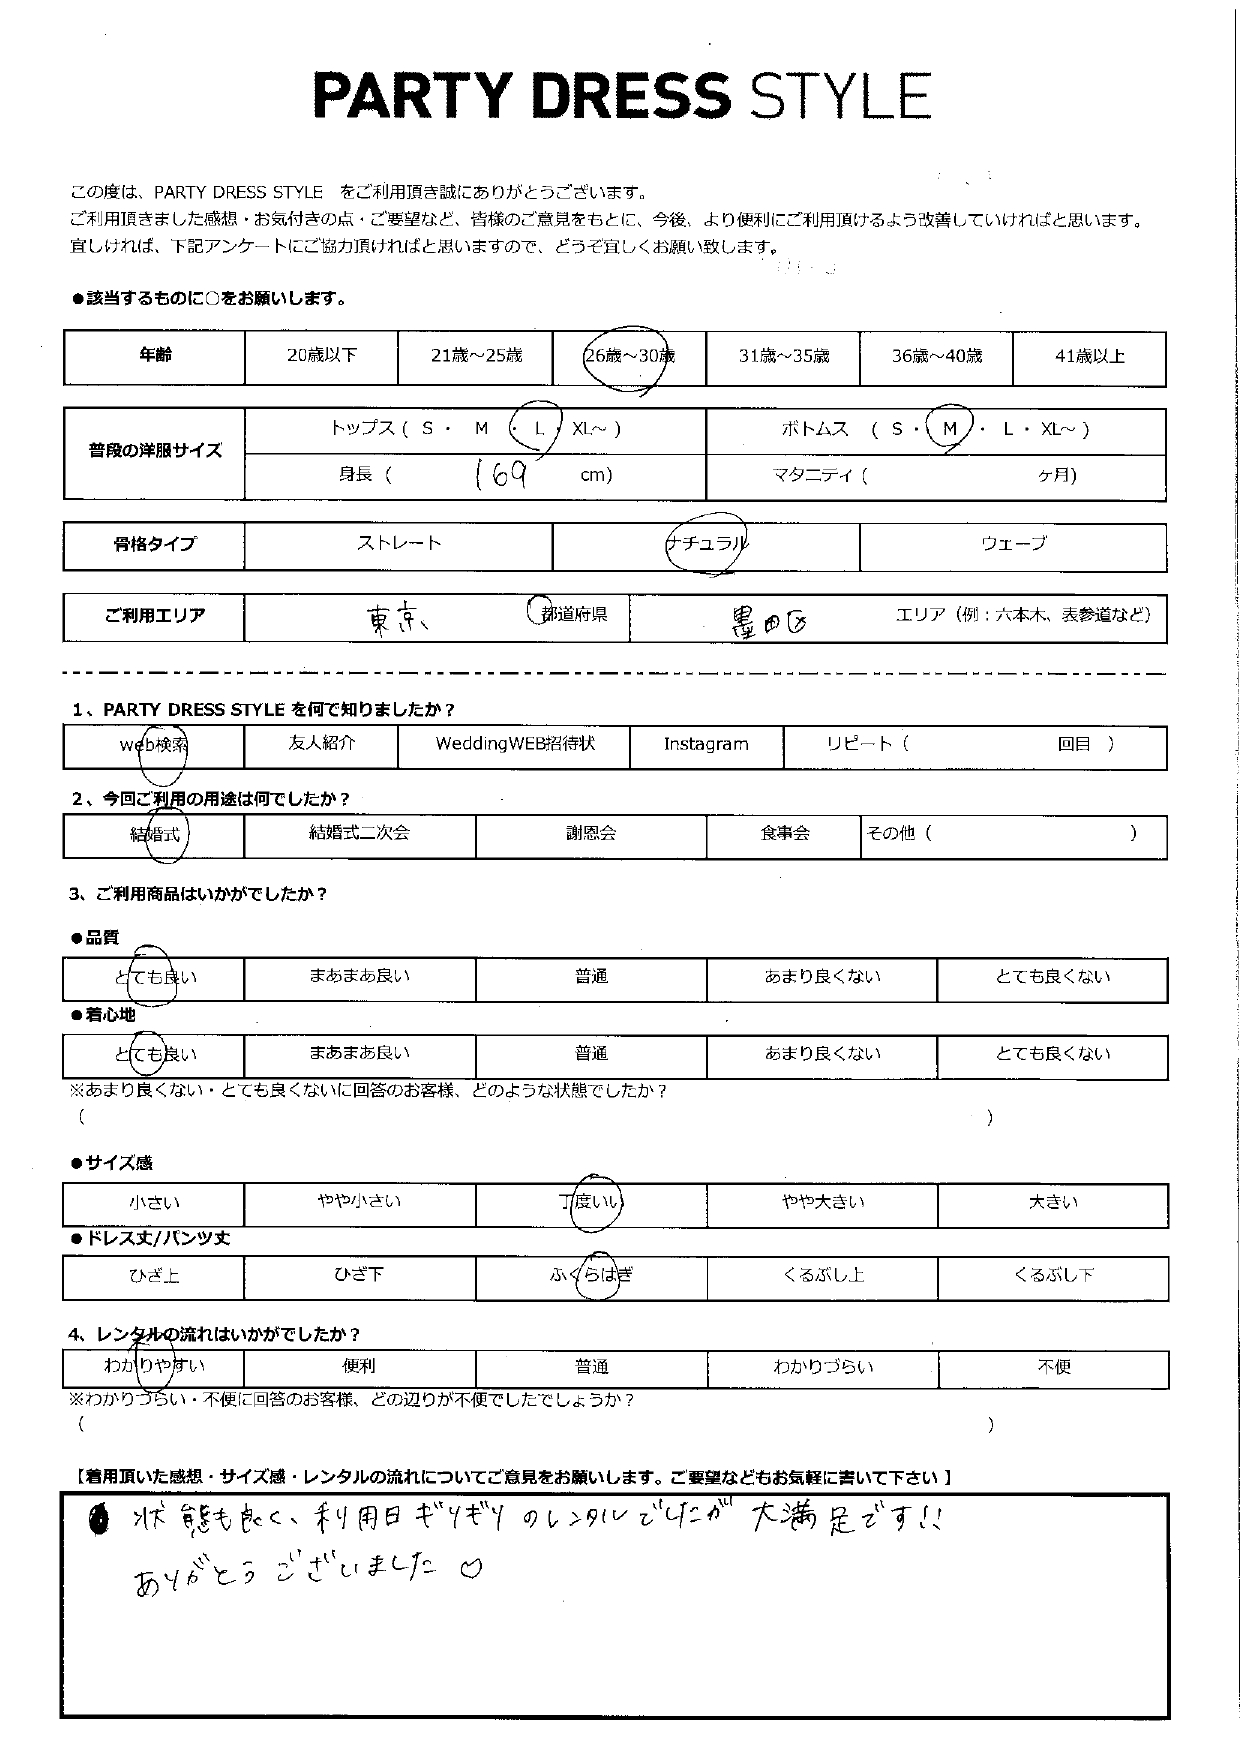 PARTY DRESS STYLE
この度は、PARTY DRESS STYLE をご利用頂き誠にありがとうございます。
ご利用頂きました感想・お気付きの点・ご要望など、皆様のご意見をもとに、今後、より便利にご利用頂けるよう改善していければと思います。
宜しければ、下記アンケートにご協力頂ければと思いますので、どうぞ宜しくお願い致します。
●該当するものに○をお願いします。
年齢 20歳以下 21歳～25歳 26歳～30歳 31歳～35歳 36歳～40歳 41歳以上
普段の洋服サイズ トップス ( S ・ M ・ L ・ XL～ ) ボトムス ( S ・ M ・ L ・ XL～ )
身長 ( 169 cm) マタニティ ( ヶ月)
骨格タイプ ストレート ナチュラル ウェーブ
ご利用エリア 東京、 都道府県 墨田区 エリア（例：六本木、表参道など）
1、PARTY DRESS STYLE を何で知りましたか？
web検索 友人紹介 WeddingWEB招待状 Instagram リピート（ 回目 ）
2、今回ご利用の用途は何でしたか？
結婚式 結婚式二次会 謝恩会 食事会 その他（ ）
3、ご利用商品はいかがでしたか？
●品質
とても良い まあまあ良い 普通 あまり良くない とても良くない
●着心地
とても良い まあまあ良い 普通 あまり良くない とても良くない
※あまり良くない・とても良くないに回答のお客様、どのような状態でしたか？
（ ）
●サイズ感
小さい やや小さい 丁度いい やや大きい 大きい
●ドレス丈/パンツ丈
ひざ上 ひざ下 ふくらはぎ くるぶし上 くるぶし下
4、レンタルの流れはいかがでしたか？
わかりやすい 便利 普通 わかりづらい 不便
※わかりづらい・不便に回答のお客様、どの辺りが不便でしたでしょうか？
（ ）
【着用頂いた感想・サイズ感・レンタルの流れについてご意見をお願いします。ご要望などもお気軽に書いて下さい 】
状態も良く、利用日ギリギリのレンタルでしたが 大満足です!!
ありがとうございました♡